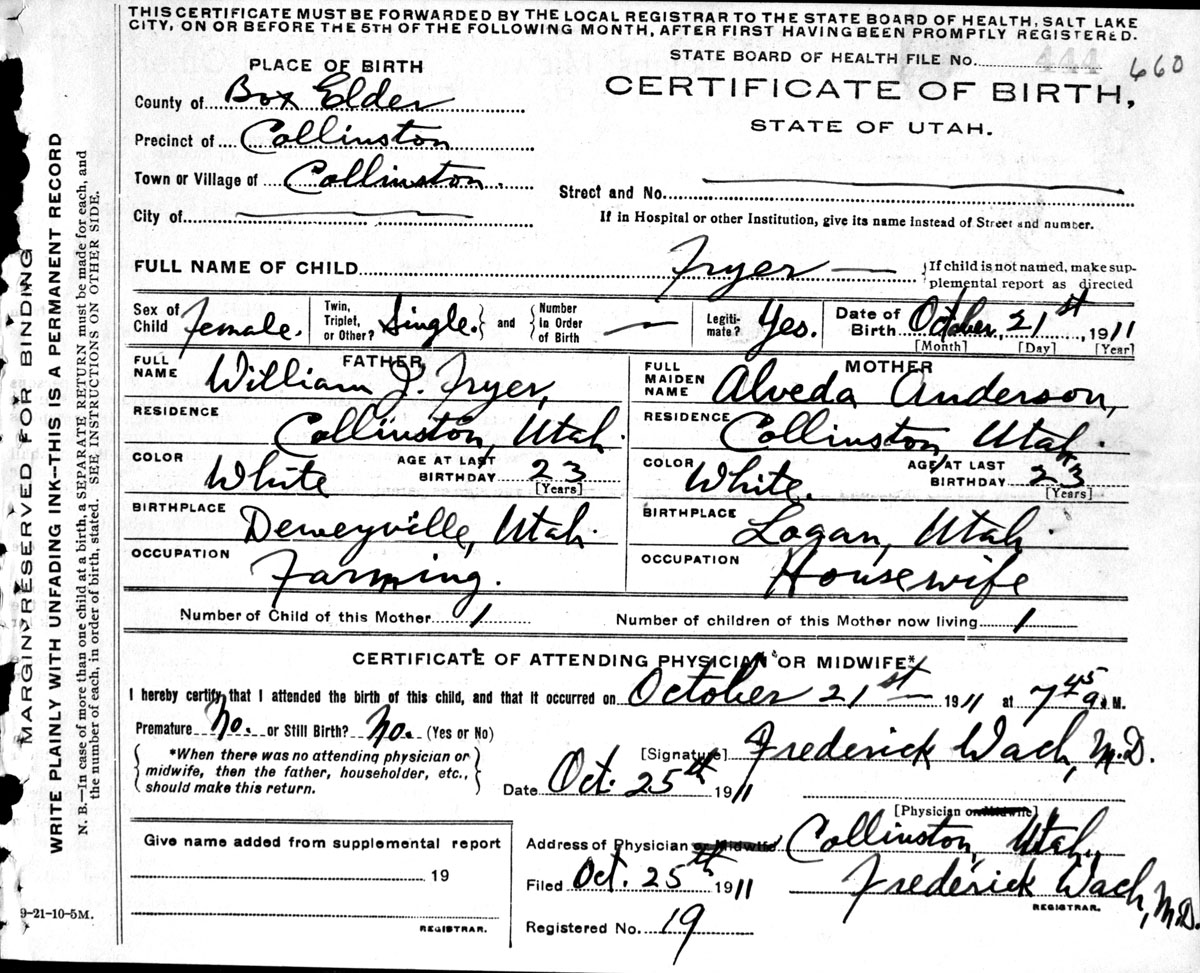 THIS CERTIFICATE MUST BE FORWARDED BY THE LOCAL REGISTRAR TO THE STATE BOARD OF HEALTH, SALT LAKE
CITY, ON OR BEFORE THE 5TH OF THE FOLLOWING MONTH, AFTER FIRST HAVING BEEN PROMPTLY REGISTERED.
STATE BOARD OF HEALTH FILE No. 444 660
PLACE OF BIRTH
CERTIFICATE OF BIRTH,
STATE OF UTAH.
County of Box Elder
Precinct of Collinston
Town or Village of Collinston.
Street and No.
City of
If in Hospital or other Institution, give its name instead of Street and number.
FULL NAME OF CHILD Fryer — { If child is not named, make sup-
plemental report as directed
Sex of Child Female. Twin, Triplet, or Other? Single. } and { Number in Order of Birth — Legiti-mate? Yes. Date of Birth October, 21st, 1911
[Month] [Day] [Year]
FATHER
FULL NAME William J. Fryer,
RESIDENCE
Collinston, Utah.
COLOR White AGE AT LAST BIRTHDAY 23
[Years]
BIRTHPLACE
Deweyville, Utah.
OCCUPATION
Farming.
MOTHER
FULL MAIDEN NAME Alveda Anderson,
RESIDENCE
Collinston, Utah.
COLOR White. AGE AT LAST BIRTHDAY 23
[Years]
BIRTHPLACE
Logan, Utah.
OCCUPATION
Housewife
Number of Child of this Mother 1 Number of children of this Mother now living 1
CERTIFICATE OF ATTENDING PHYSICIAN OR MIDWIFE*
I hereby certify that I attended the birth of this child, and that it occurred on October 21st — 1911 at 7 45 a. M.
Premature No. or Still Birth? No. (Yes or No)
*When there was no attending physician or
midwife, then the father, householder, etc.,
should make this return.
[Signature] Frederick Wach, M.D.
Date Oct. 25th 1911
[Physician or Midwife]
Address of Physician or Midwife Collinston, Utah,
Filed Oct. 25th 1911 Frederick Wach, M.D.
REGISTRAR.
Registered No. 19
Give name added from supplemental report
19
REGISTRAR.
9-21-10-5M.
MARGIN RESERVED FOR BINDING
WRITE PLAINLY WITH UNFADING INK—THIS IS A PERMANENT RECORD
N. B.—In case of more than one child at a birth, a SEPARATE RETURN must be made for each, and
the number of each, in order of birth, stated. SEE INSTRUCTIONS ON OTHER SIDE.